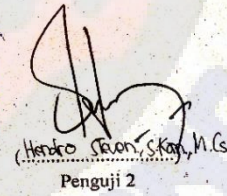 (Hendro Steven, S.Kom, M.Cs
Penguji 2